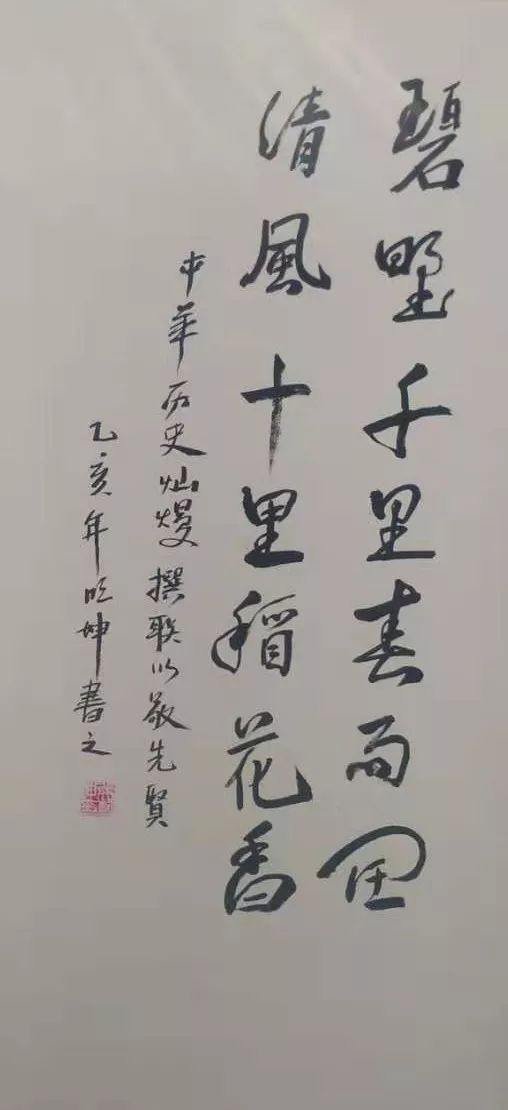 碧野千里春雨田
清風十里稻花香
中华历史灿熳撰联以敬先賢
乙亥年 坤書之